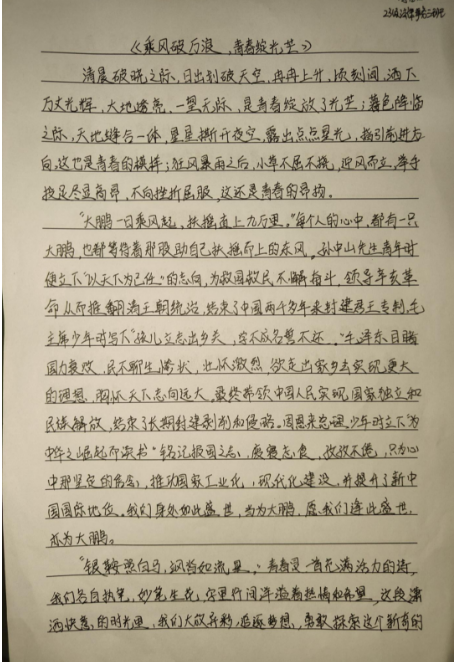 《乘风破万浪，青春绽光芒》
清晨破晓之际，日出划破天空，冉冉上升，顷刻间，洒下
万丈光辉，大地透亮，一望无际，是青春绽放了光芒；暮色降临
之际，天地缝合一体，星星撕开夜空，露出点点星光，指引前进方
向，这也是青春的模样；狂风暴雨之后，小草不屈不挠，迎风而立，举手
投足尽显高昂，不向挫折屈服，这还是青春的昂扬。
"大鹏一日乘风起，扶摇直上九万里。"每个人的心中，都有一只
大鹏，也都等待着那股助自己扶摇而上的东风。孙中山先生青年时
便立下"以天下为己任"的志向，为救国救民不懈奋斗，领导辛亥革
命从而推翻清王朝统治，结束了中国两千多年来封建君王专制，毛
主席少年时写下"孩儿立志出乡关，学不成名誓不还。"毛泽东目睹
国力衰败，民不聊生惨状，壮怀激烈，欲走出家乡去实现更大
的理想，胸怀天下志向远大，最终带领中国人民实现国家独立和
民族解放，结束了长期封建剥削和侵略。周恩来总理少年时立下"为
中华之崛起而读书"铭记报国之志，废寝忘食，孜孜不倦，只为心
中那坚定的信念，推动国家工业化，现代化建设，并提升了新中
国国际地位。我们身处如此盛世，为大鹏，愿我们逢此盛世，
亦为大鹏。
"银鞍照白马，飒沓如流星。"青春是一首充满活力的诗，
我们各自执笔，妙笔生花，字里行间洋溢着热情和希望，这段潇
洒快意的时光里，我们大放异彩，追逐梦想，勇敢探索这个新奇的